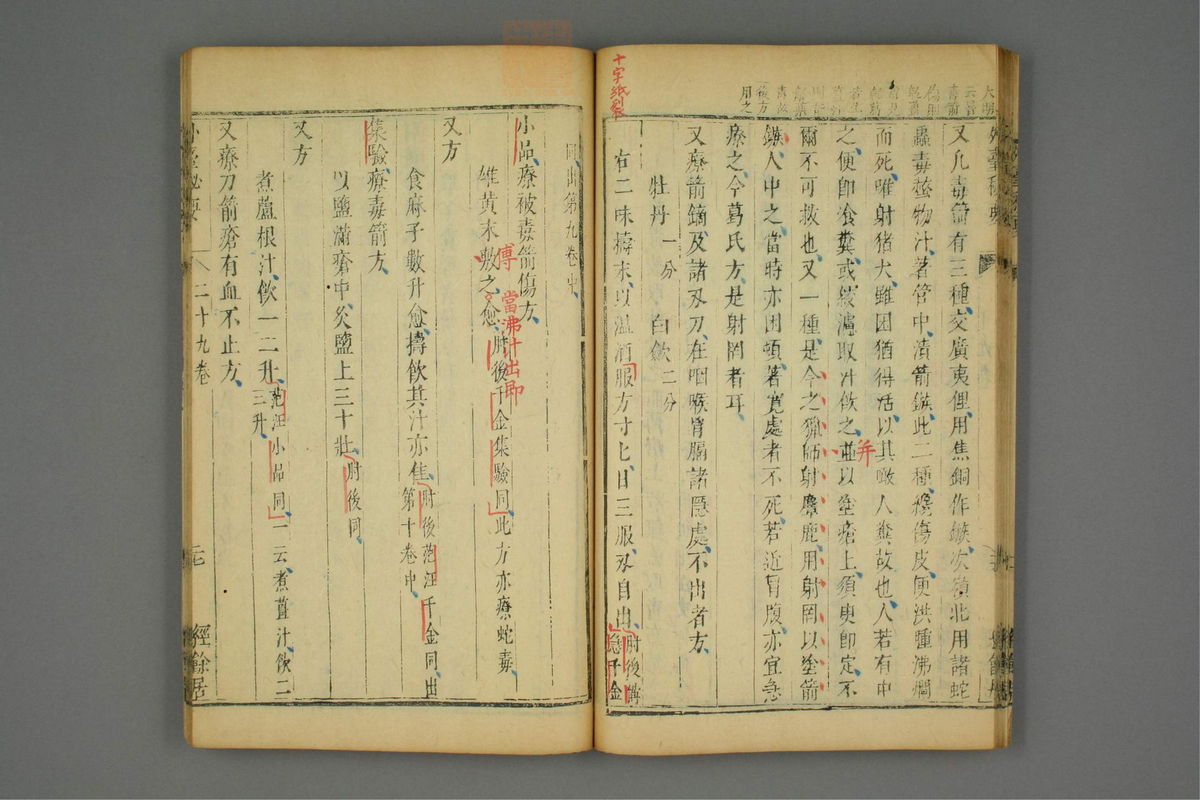 十字紙裂
用之
又凡毒箭有三種交廣夷俚用焦銅作鏃次嶺北用諸蛇
蟲毒螫物汁著管中漬箭鏃此二種纔傷皮便洪腫沸爛
而死唯射猪犬雖困猶得活以其噉人糞故也人若有中
之便即飡糞或絞濾取汁飲之並以塗瘡上須臾即定不
并
爾不可救也又一種是今之獵師射麞鹿用射罔以塗箭
鏃人中之當時亦困頓著寬處者不死若近胷腹亦宜急
療之今葛氏方是射罔者耳
又療箭鏑及諸刄刀在咽喉胷膈諸隱處不出者方
牡丹一分 白歛二分
右二味擣末以温酒服方寸匕日三服刄自出肘後備
急千金
同出第九卷中
小品療被毒箭傷方
雄黄末敷之愈肘後千金集驗同此方亦療蛇毒
傅 當沸汁出即
又方
食麻子數升愈擣飲其汁亦佳肘後范汪千金同出
第十卷中
集驗療毒箭方
以鹽滿瘡中灸鹽上三十壯肘後同
又方
煮蘆根汁飲一二升范汪小品同一云煮葍汁飲二
三升
又療刀箭瘡有血不止方
二十九卷
經餘居